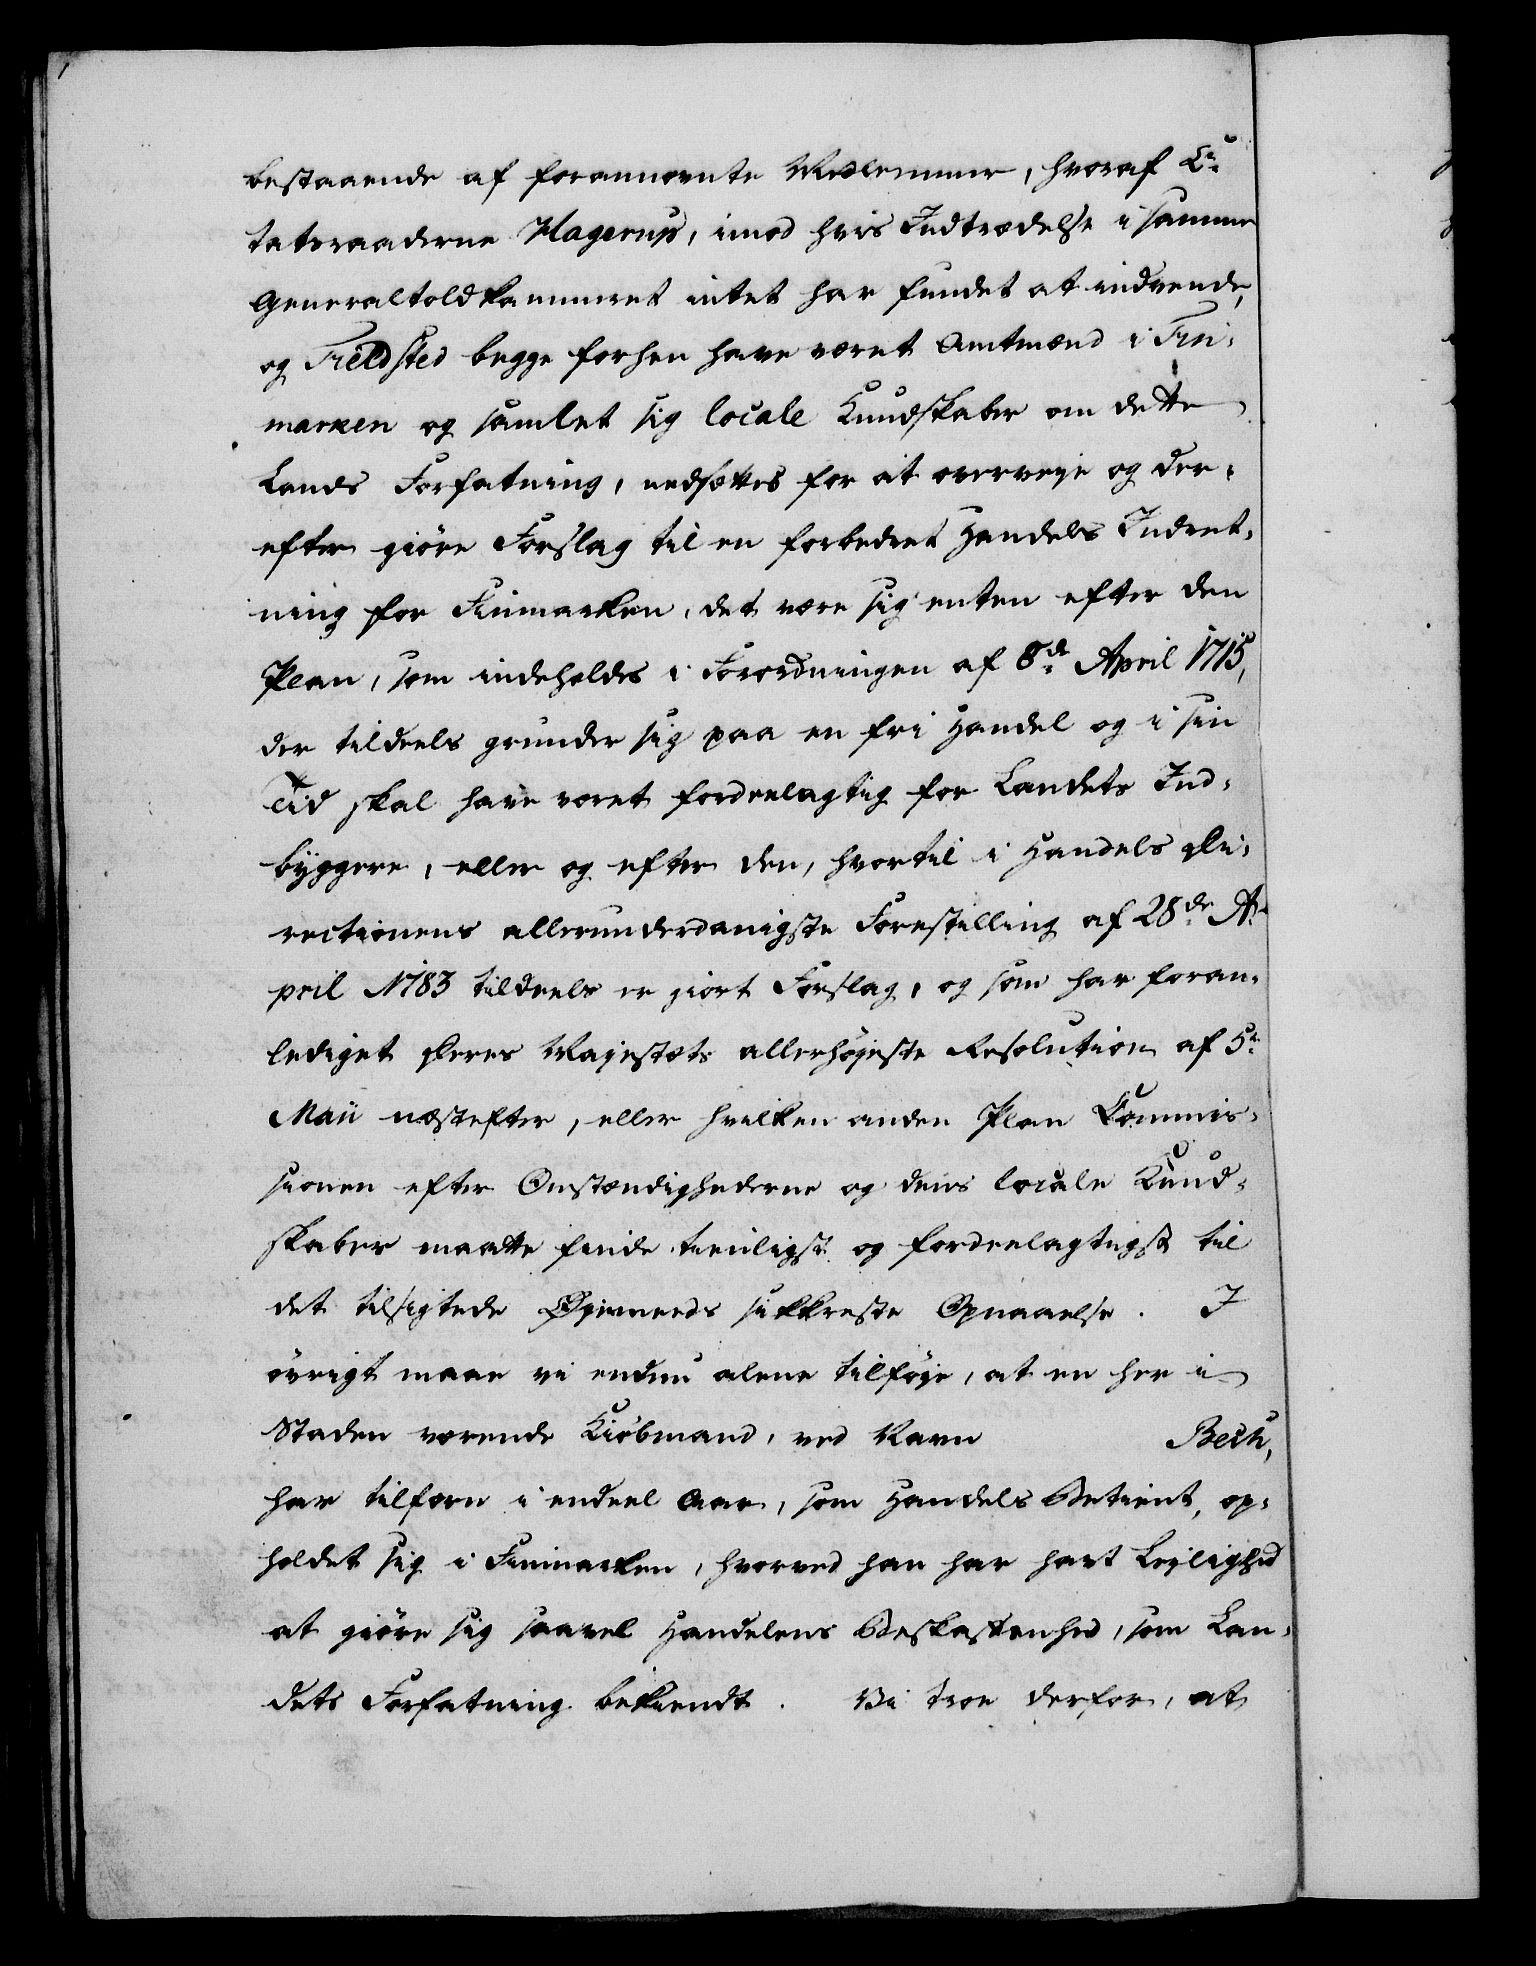 bestaaende af forannevnte Medlemmer, hvoraf E¬
tatsraaderne Hagerup, imod hvis Indtrædelse i samme
Generaltoldkammeret intet har fundet at indvende,
og Fieldsted begge forhen have været Amtmænd i Fin¬
marken og samlet sig locale Kundskaber om dette
Lands Forfatning, nedsættes for at overveje og der¬
efter giöre Forslag til en forbedret Handels Indret¬
ning for Finmarken, det være sig enten efter den
Plan, som indeholdes i Forordningen af 8de April 1715,
der tildeels grunder sig paa en fri Handel og i sin
Tid skal have været fordeelagtig for Landets Ind¬
byggere, eller og efter den, hvortil i Handels Di¬
rectionens allerunderdanigste Forestilling af 28de A¬
pril 1783 tildeels er giort Forslag, og som har foran¬
lediget Deres Majestæts allerhöjeste Resolution af 5te
Maii næstefter, eller hvilken anden Plan Commis¬
sionen efter Omstændighederne og dens locale Kund¬
skaber maatte finde tienligst og fordeelagtigst til
det tilsigtede Øjemeeds sikkreste Opnaaelse. I
övrigt maae vi endnu alene tilföje, at en her i
Staden værende Kiöbmand, ved Navn Bech,
har tilforn i endeel Aar, som Handels Betient, op¬
holdet sig i Finmarken, hvorved han har havt Lejlighed
at giöre sig saavel Handelens Beskaffenhed, som Lan¬
dets Forfatning bekiendt. Vi troe derfor, at